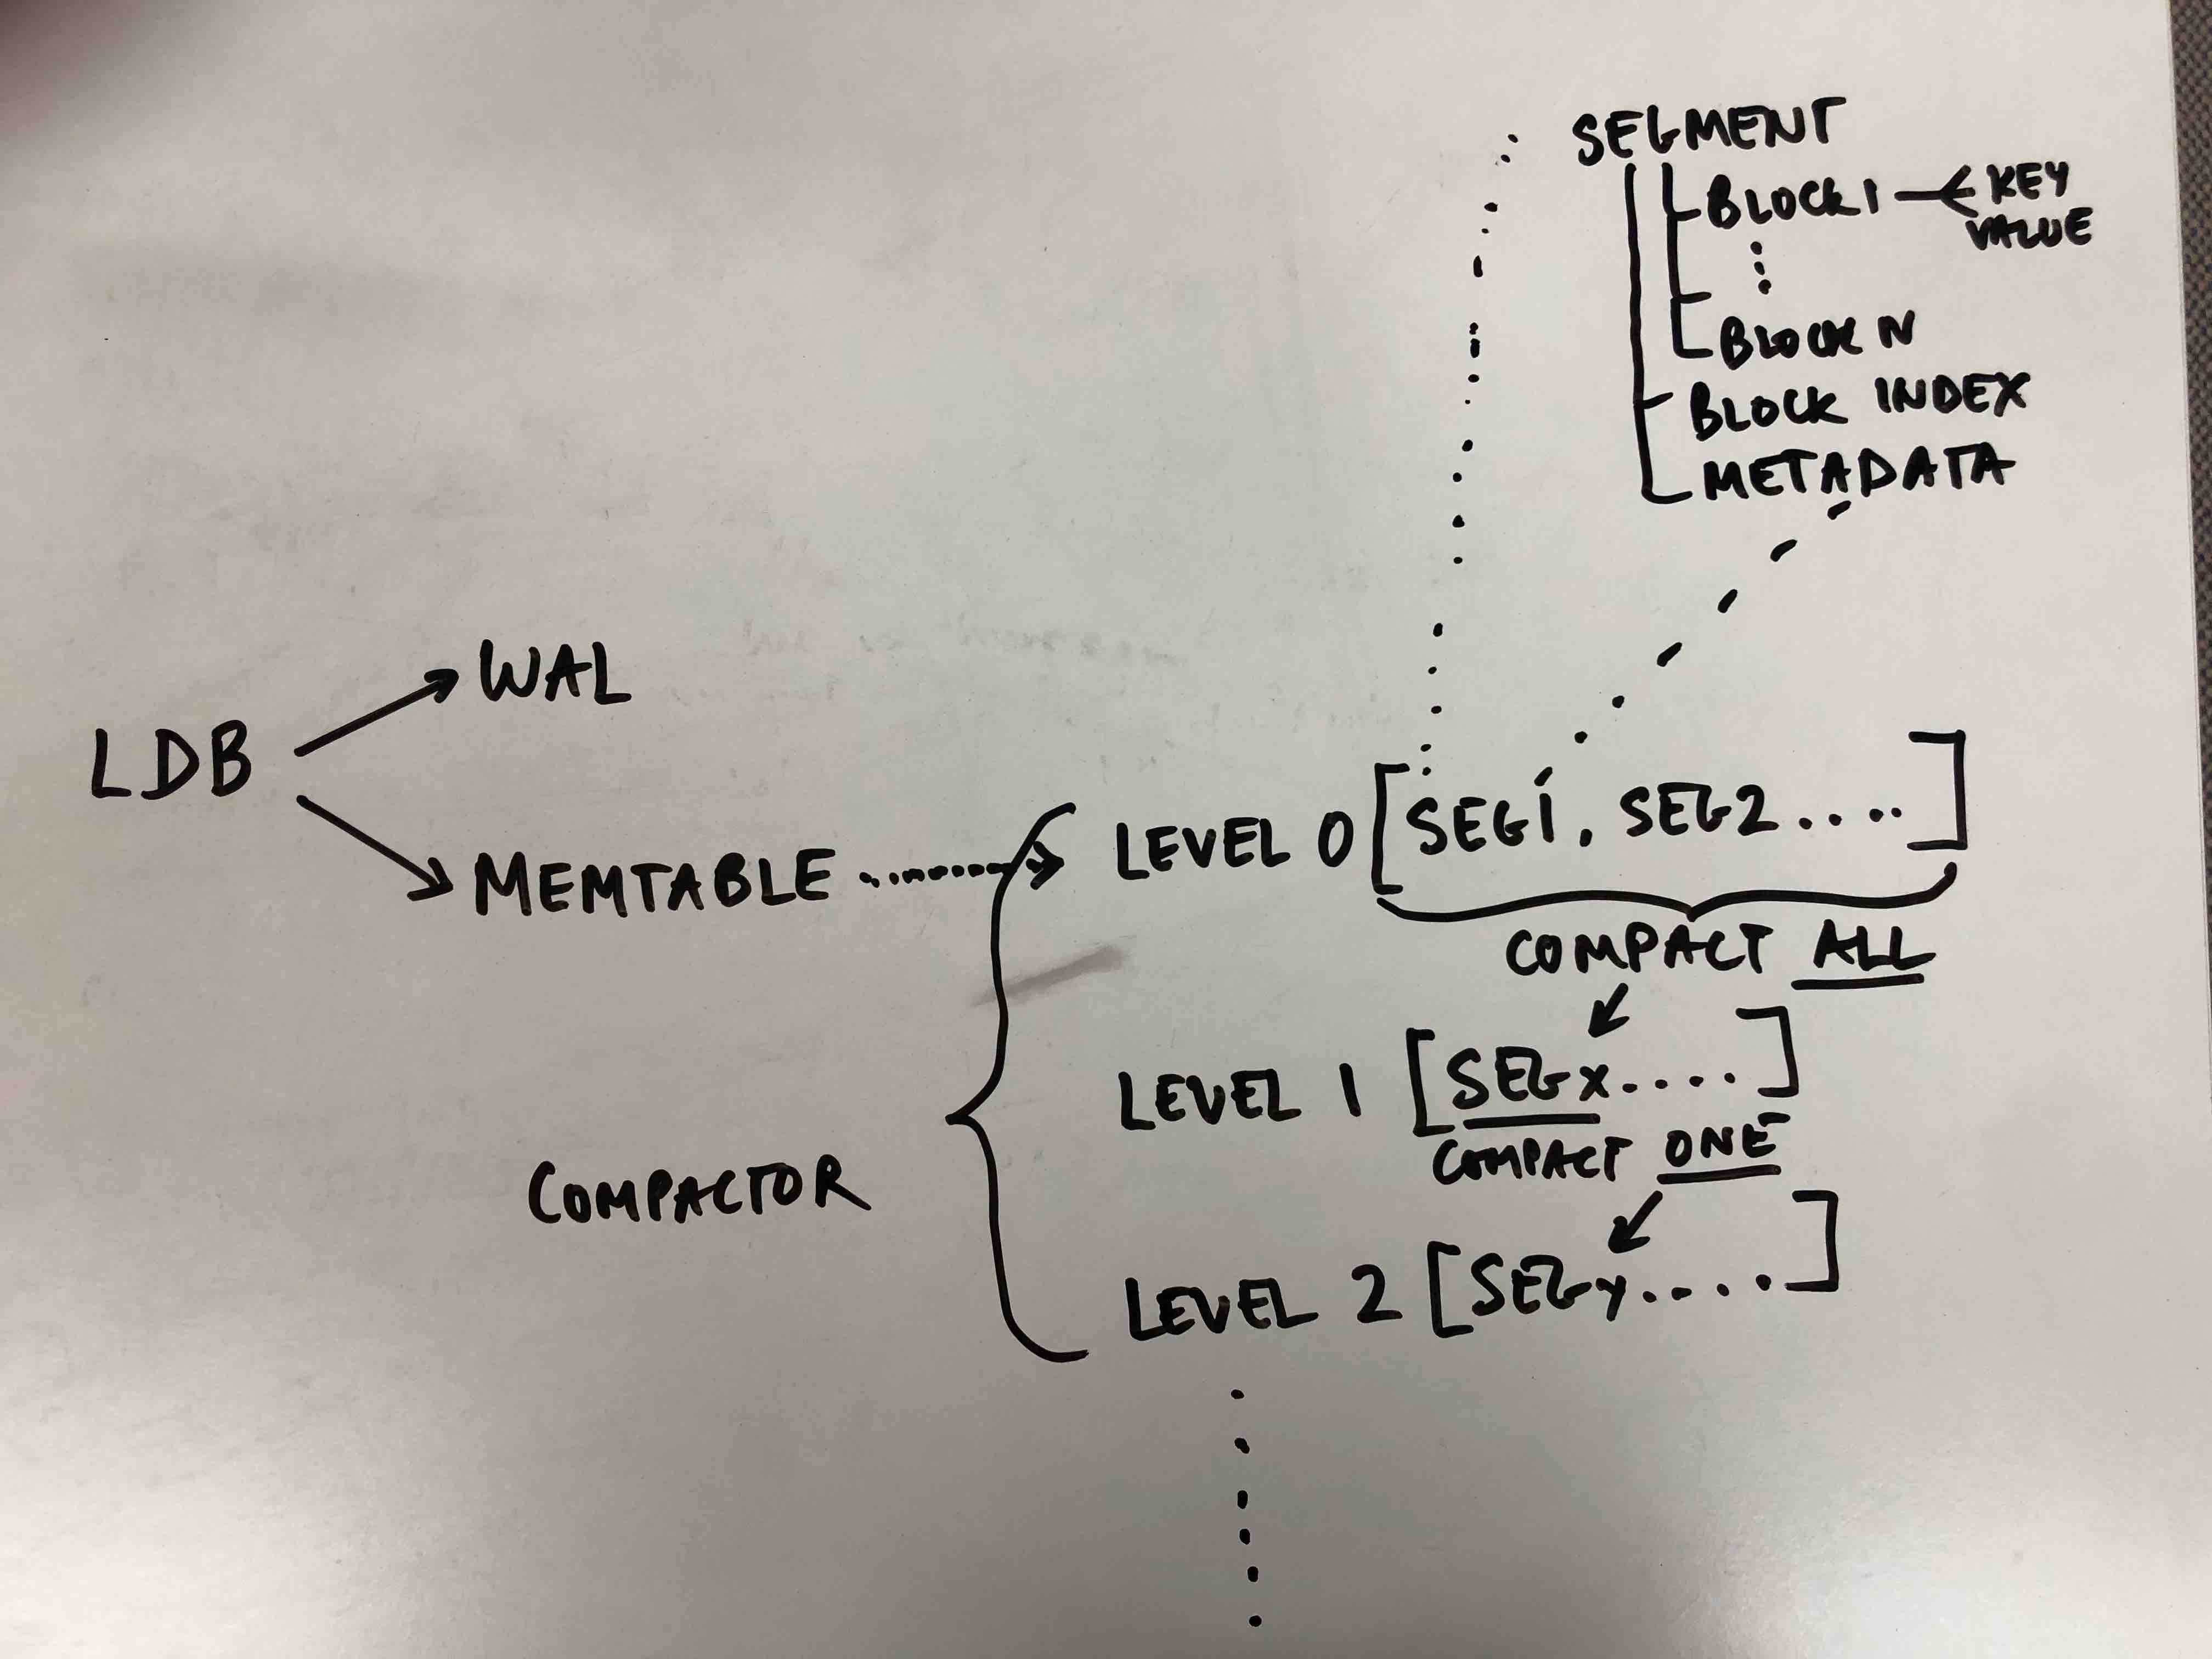 SEGMENT
BLOCK 1
KEY
VALUE
BLOCK N
BLOCK INDEX
METADATA
LDB
WAL
MEMTABLE
LEVEL 0 [SEG1, SEG2....]
COMPACT ALL
LEVEL 1 [SEGX....]
COMPACT ONE
COMPACTOR
LEVEL 2 [SEGY....]